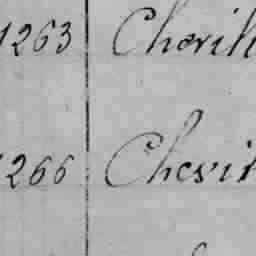 1263 Cherih
1266 Chesir